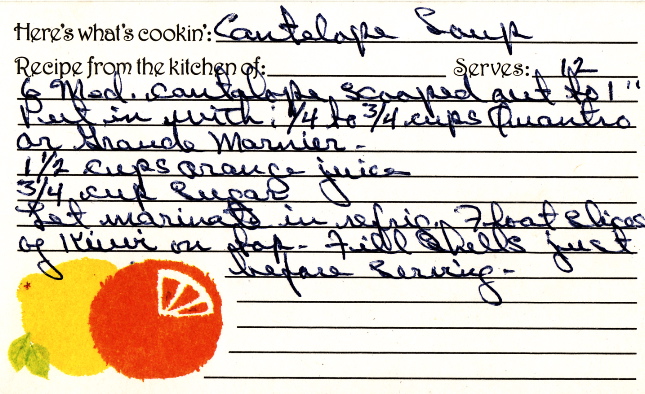 Here's what's cookin': Cantelope Soup
Recipe from the kitchen of: Serves: 12
6 Med. cantelope scooped out to 1"
Put in with: 1/4 to 3/4 cups Quantro
or Grande Marnier-
1 1/2 cups orange juice
3/4 cup sugar
Let marinate in refrig. Float slices
of Kiwi on top- Fill shells just
before serving-